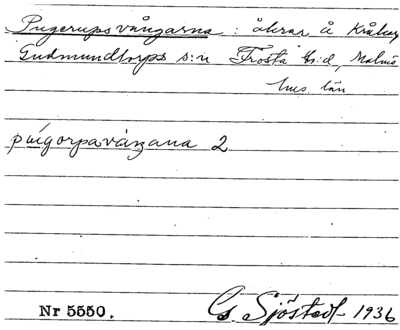 Pugerupsvångarna: åkrar å
Gudmundtorps s:n Frosta h:d, Malmö
hus län
2
Nr 5550. G. Sjöstedt 1936